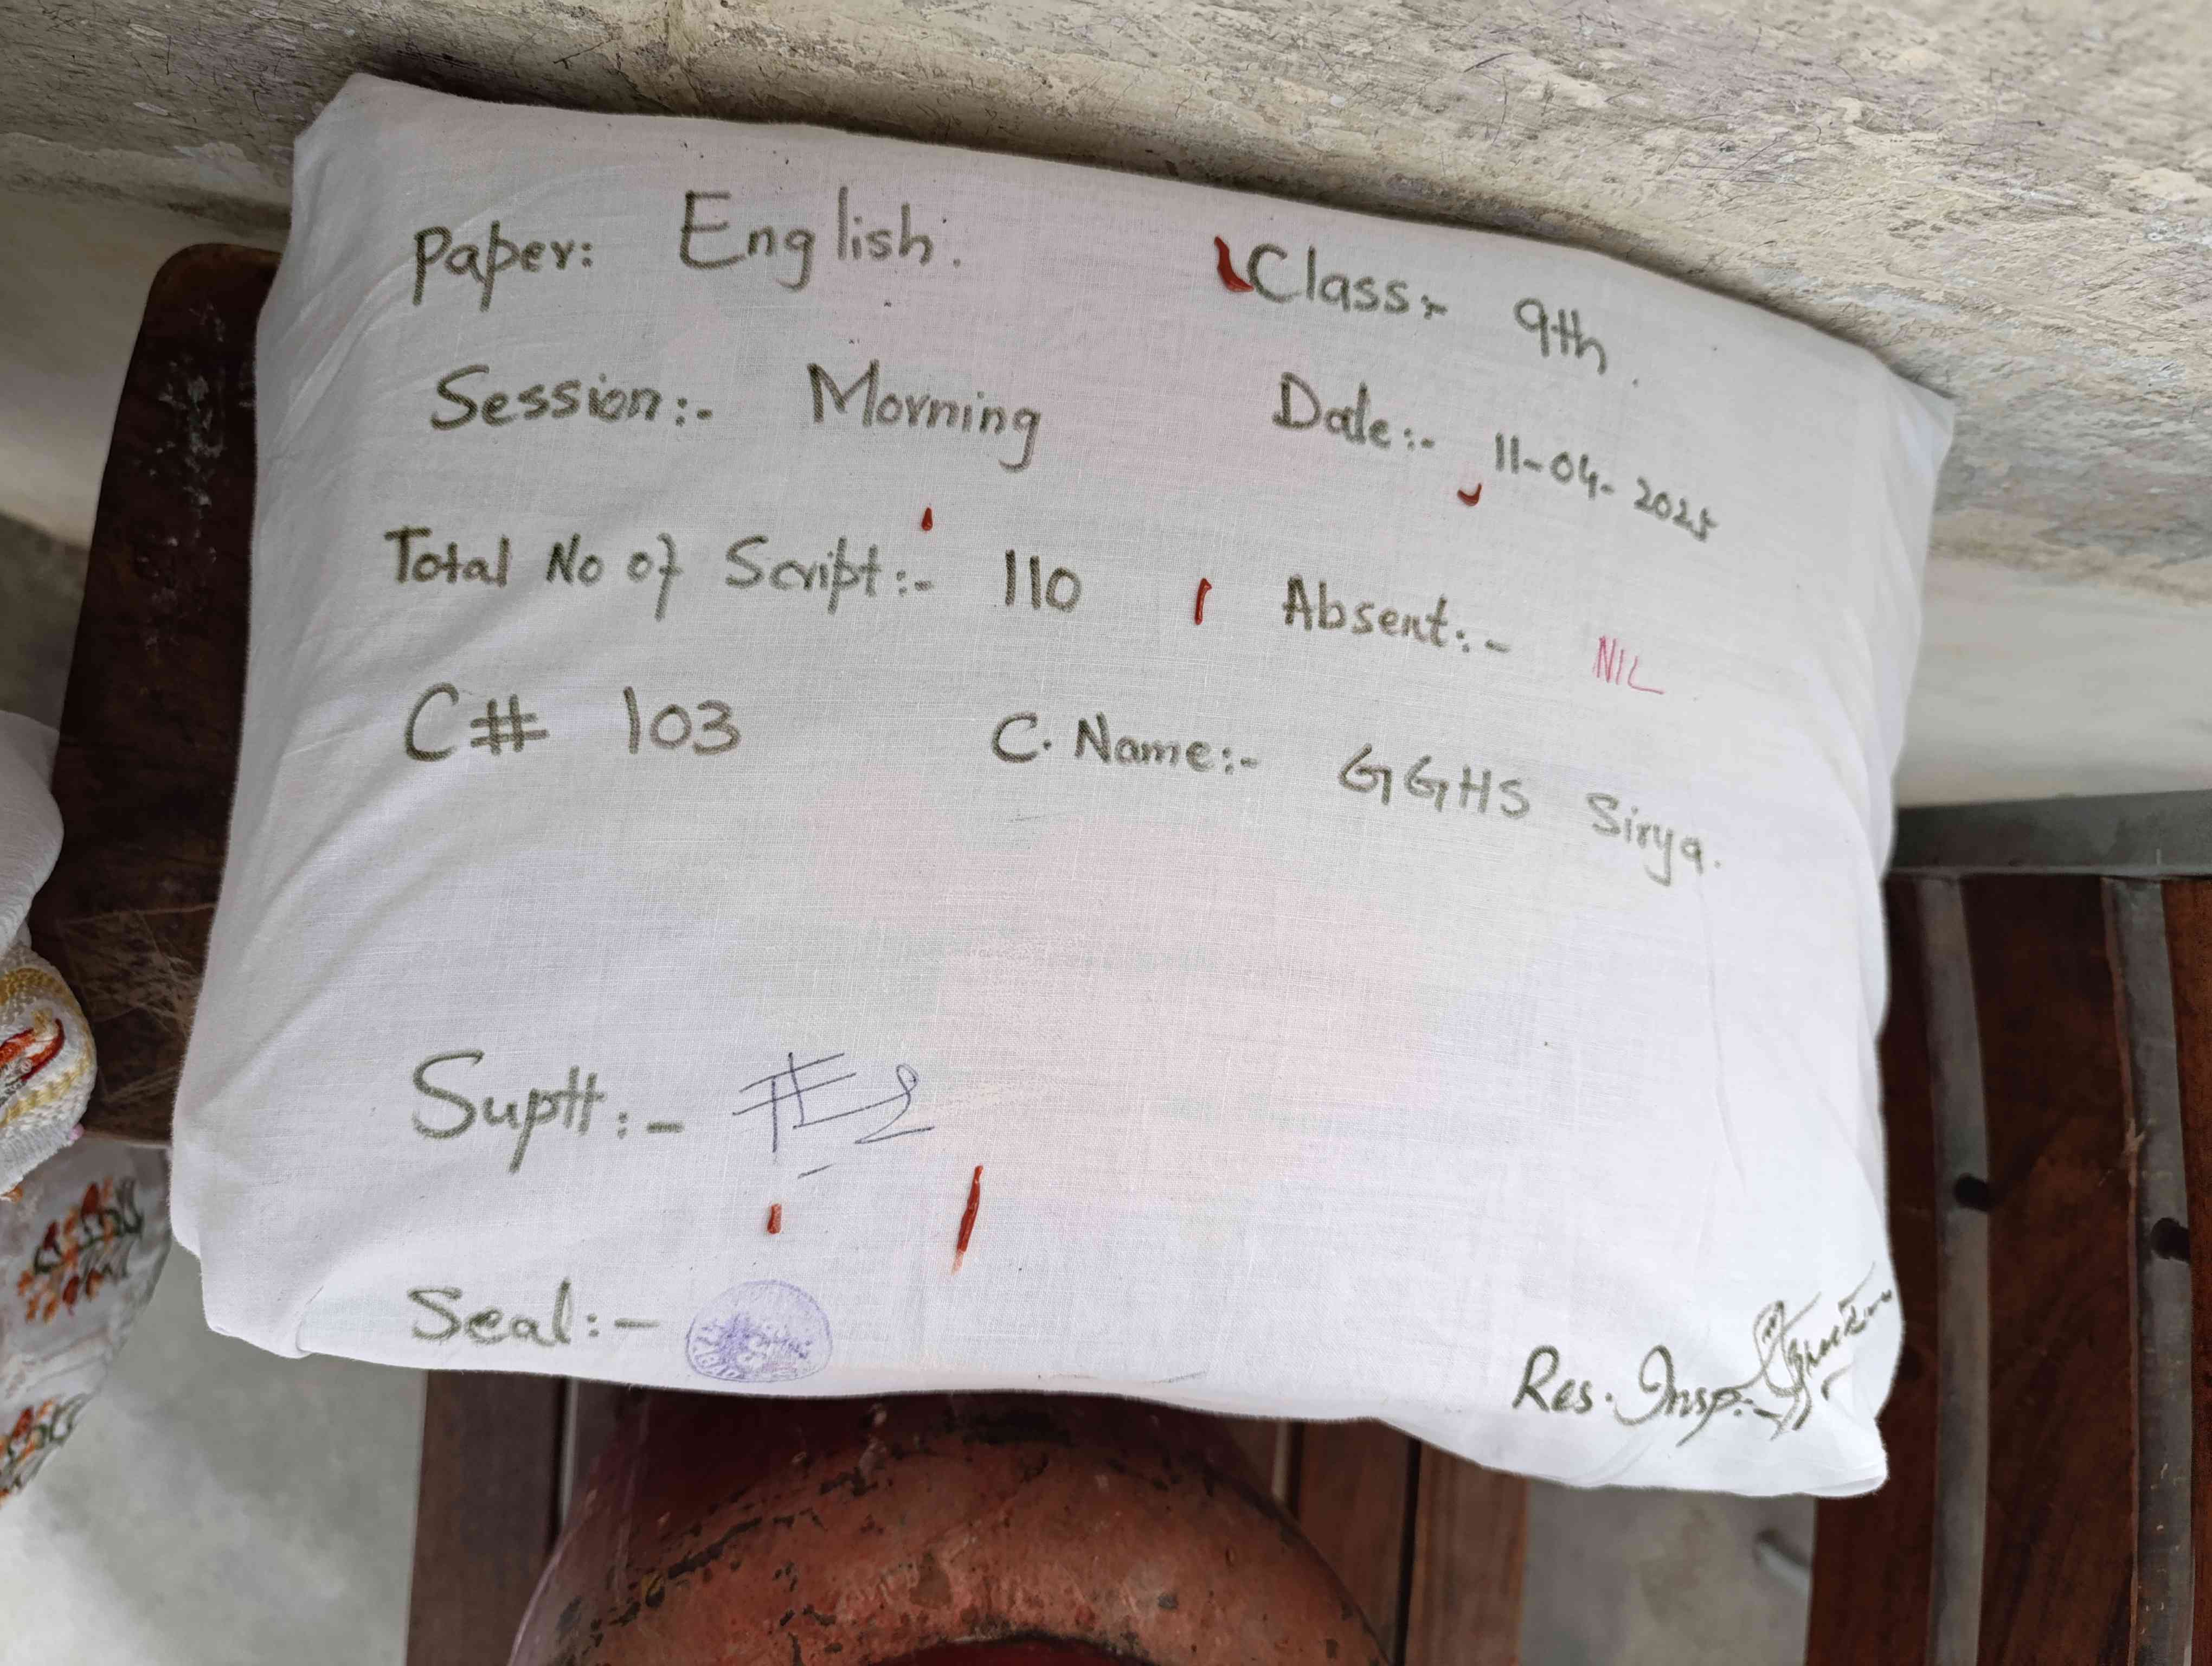 Paper: English. Class:- 9th.
Session:- Morning Date:- 11-04-2025
Total No of Script:- 110 Absent:- NIL
C# 103 C. Name:- GGHS Sirya.
Suptt:-
Seal:-
Res. Insp:-